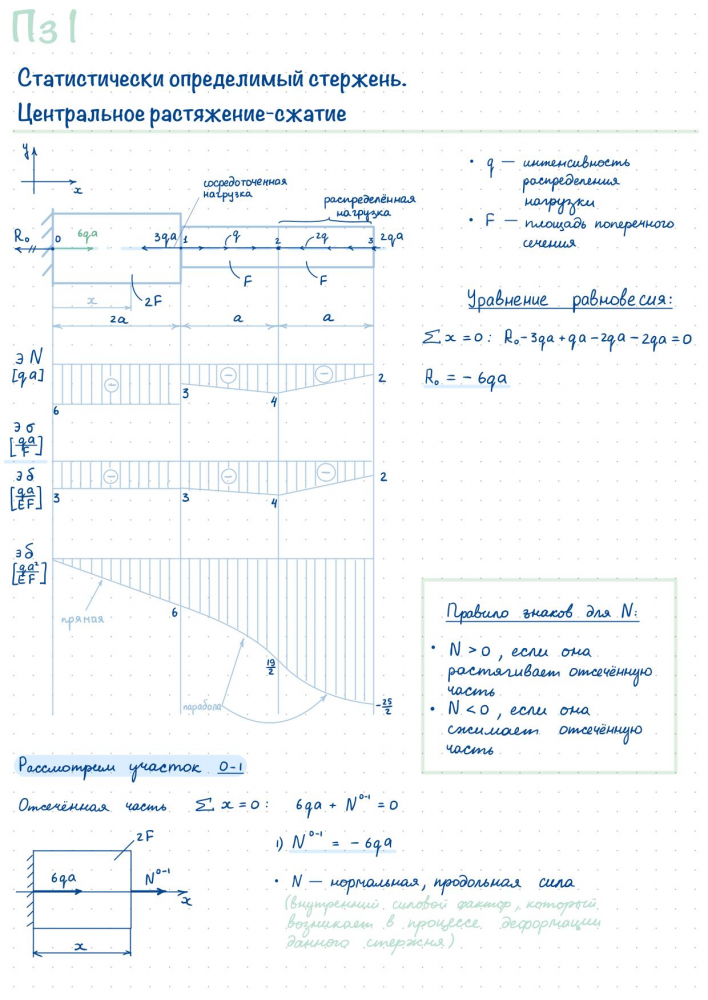 Пз 1
Статистически определимый стержень.
Центральное растяжение-сжатие
y
x
сосредоточенная
нагрузка
распределённая
нагрузка
R₀ 0 6qa 3qa 1 q 2 2q 3 2qa
F F
x 2F
2a a a
• q — интенсивность
распределения
нагрузки
• F — площадь поперечного
сечения
Уравнение равновесия:
Σ x = 0 : R₀ - 3qa + qa - 2qa - 2qa = 0
R₀ = - 6qa
э N
[qa]
6 3 4 2
э σ
[qa/F]
э δ
[qa/EF]
3 3 4 2
э δ
[qa²/EF]
прямая
6
19/2
парабола
-25/2
Правило знаков для N:
• N > 0, если она
растягивает отсечённую
часть
• N < 0, если она
сжимает отсечённую
часть
Рассмотрим участок 0-1
Отсечённая часть Σ x = 0 : 6qa + N⁰⁻¹ = 0
2F
6qa N⁰⁻¹
x
x
1) N⁰⁻¹ = - 6qa
• N — нормальная, продольная сила
(внутренний силовой фактор, который
возникает в процессе деформации
данного стержня)